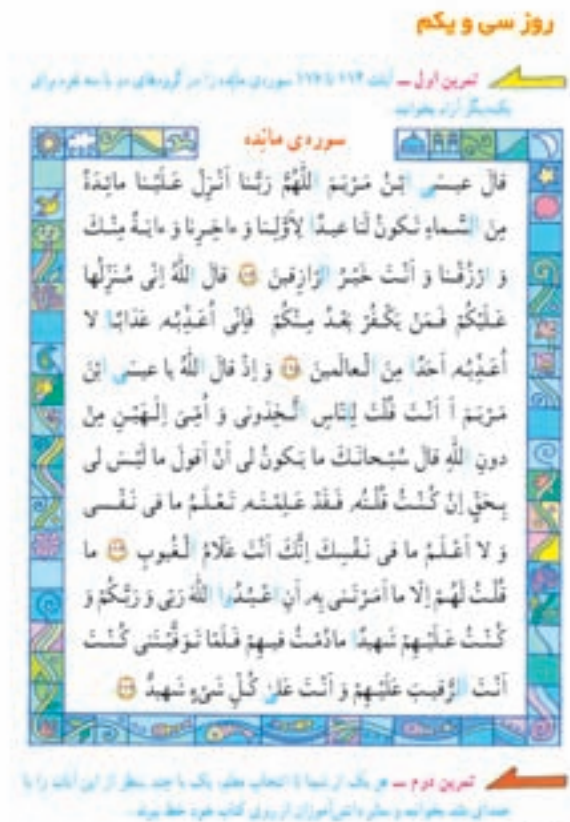 روز سی و یکم
تمرین اول ــ آیات ۱۱۴ تا ۱۱۷ سوره‌ی مائده را در گروه‌های دو یا سه نفره برای
یکدیگر آرام بخوانید.
سوره‌ی مائده
قالَ عیسَی ابْنُ مَرْیَمَ اللّٰهُمَّ رَبَّنا اَنْزِلْ عَلَیْنا مائِدَةً
مِنَ السَّماءِ تَکونُ لَنا عیدًا لِاَوَّلِنا وَ ءاخِرِنا وَ ءایَةً مِنْکَ
وَ ارْزُقْنا وَ اَنْتَ خَیْرُ الرّازِقینَ قالَ اللّٰهُ اِنّی مُنَزِّلُها
عَلَیْکُمْ فَمَنْ یَکْفُرْ بَعْدُ مِنْکُمْ فَاِنّی اُعَذِّبُهو عَذابًا لا
اُعَذِّبُهو اَحَدًا مِنَ الْعالَمینَ وَ اِذْ قالَ اللّٰهُ یا عیسَی ابْنَ
مَرْیَمَ أَ اَنْتَ قُلْتَ لِلنّاسِ اتَّخِذونی وَ اُمِّیَ اِلٰهَیْنِ مِنْ
دونِ اللّٰهِ قالَ سُبْحانَکَ ما یَکونُ لی اَنْ اَقولَ ما لَیْسَ لی
بِحَقٍّ اِنْ کُنْتُ قُلْتُهو فَقَدْ عَلِمْتَهو تَعْلَمُ ما فی نَفْسی
وَ لا اَعْلَمُ ما فی نَفْسِکَ اِنَّکَ اَنْتَ عَلّامُ الْغُیوبِ ما
قُلْتُ لَهُمْ اِلّا ما اَمَرْتَنی بِهی اَنِ اعْبُدُوا اللّٰهَ رَبّی وَ رَبَّکُمْ وَ
کُنْتُ عَلَیْهِمْ شَهیدًا مادُمْتُ فیهِمْ فَلَمّا تَوَفَّیْتَنی کُنْتَ
اَنْتَ الرَّقیبَ عَلَیْهِمْ وَ اَنْتَ عَلیٰ کُلِّ شَیْءٍ شَهیدٌ
تمرین دوم ــ هر یک از شما با انتخاب معلم، یک یا چند سطر از این آیات را با
صدای بلند بخوانید و سایر دانش‌آموزان از روی کتاب خود خط ببرند.